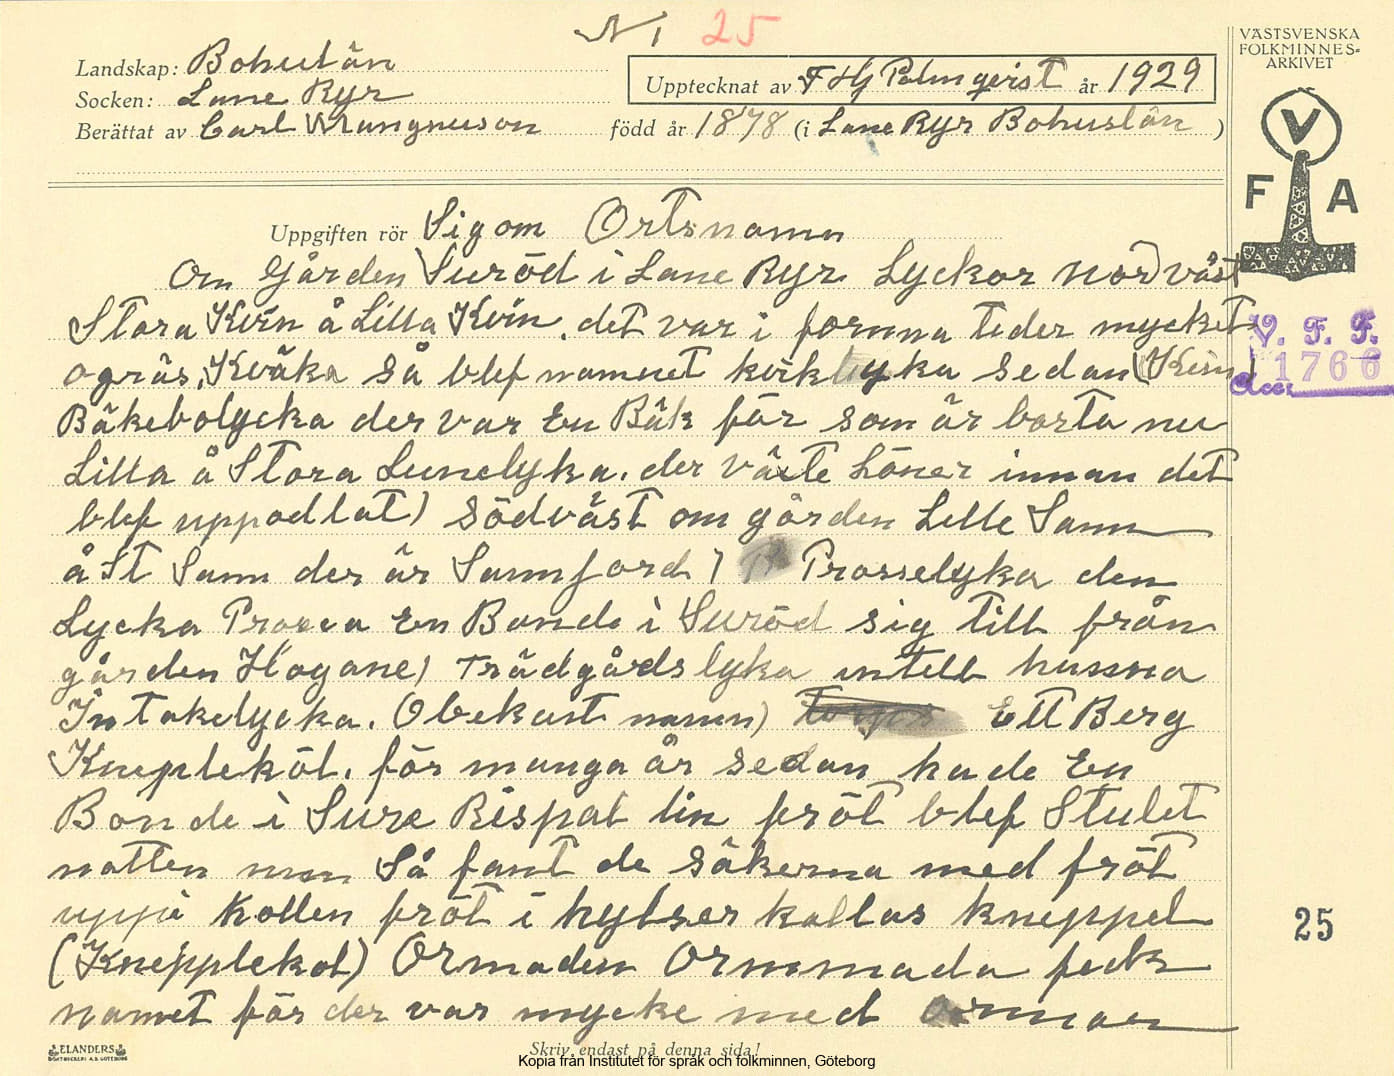 N 1 25
VÄSTSVENSKA
FOLKMINNES-
ARKIVET
Landskap: Bohuslän
Upptecknat av F Hj Palmqvist år 1929
Socken: Lane Ryr
Berättat av Carl Mangnuson född år 1878 (i Lane Ryr Bohuslän)
V
F A
Uppgiften rör Sigom Ortsnamn
Om Gården Suröd i Lane Ryr Lyckor Nordväst
Stora Kvin å Lilla Kvin. det var i fornna tider mycket
V. F. F.
ogräs, Kväka så blef namnet kviklyka sedan (Kvin)
1766
Acc.
Bäkebolycka der var En Bäk för som är borta nu
Lilla å Stora Lunelyka. der väste Löner innan det
blef uppodlat) Södväst om gården Lille Sann
å St Sann der är Sannjord) Prosselyka den
Lycka Prossa En Bonde i Suröd sig till från
gården Hogane) Trädgårdslyka intell hussna
Intakelycka. (Obekant namn) Ett Berg
Knepplekôl. för manga år sedan hade En
Bonde i Sure Rispat lin fröt blef Stulet
natten men Så fant de säkerna med fröt
uppå Kollen fröt i hylser kallas kneppel
(Knepplekol) Ormaden Ormmada feck
namnet för der var mycke med ormar
25
ELANDERS
BOKTRYCKERI A.B. GÖTEBORG
Skriv endast på denna sida!
Kopia från Institutet för språk och folkminnen, Göteborg